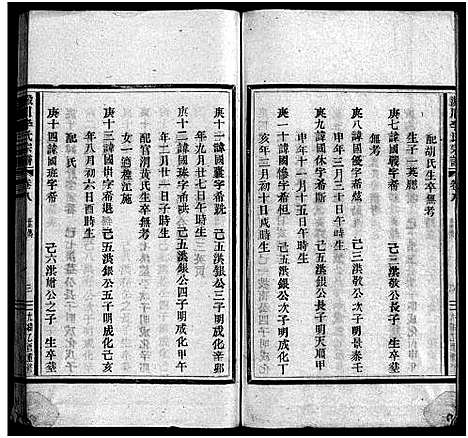 配胡氏生卒無考
生子一英聰
庚七諱國嚴字希
己三洪敬公長子 生卒墓
無考
庚八諱國優字希炫 己三洪敬公次子明景泰壬
申年三月三十日午時生
庚九諱國休字希斯 己五洪銀公長子明天順甲
申年十一月十五日午時生
庚十諱國修字希桓 己五洪銀公次子明成化丁
亥年三月初十日戌時生
庚十一諱國襄字希號 己五洪銀公三子明成化辛卯
年九月廿七日午時生
庚十二諱國珠字希珙 己五洪銀公四子明成化甲午
年二月廿一日子時生
庚十三諱國瑛字希琇 己五洪銀公五子明成化己亥
年八月初六日酉時生
配官渭黃氏生卒墓無考
女一適槎江戚
庚十四諱國班字希 己六洪 公之子 生卒墓
李氏宗譜
卷八